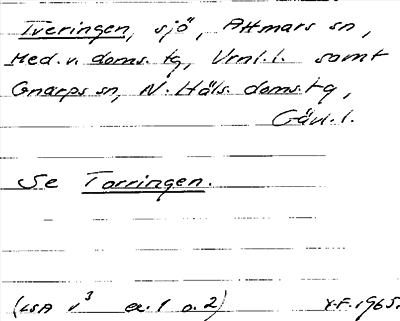 Tveringen, sjö, Attmars sn,
Med.v. doms.tg, Vrnl.l. samt
Gnarps sn, N. Häls. doms.tg,
Gävl.l.
Se Tarringen.
(LSA v³ ea. 1 o. 2) Y.F. 1965.